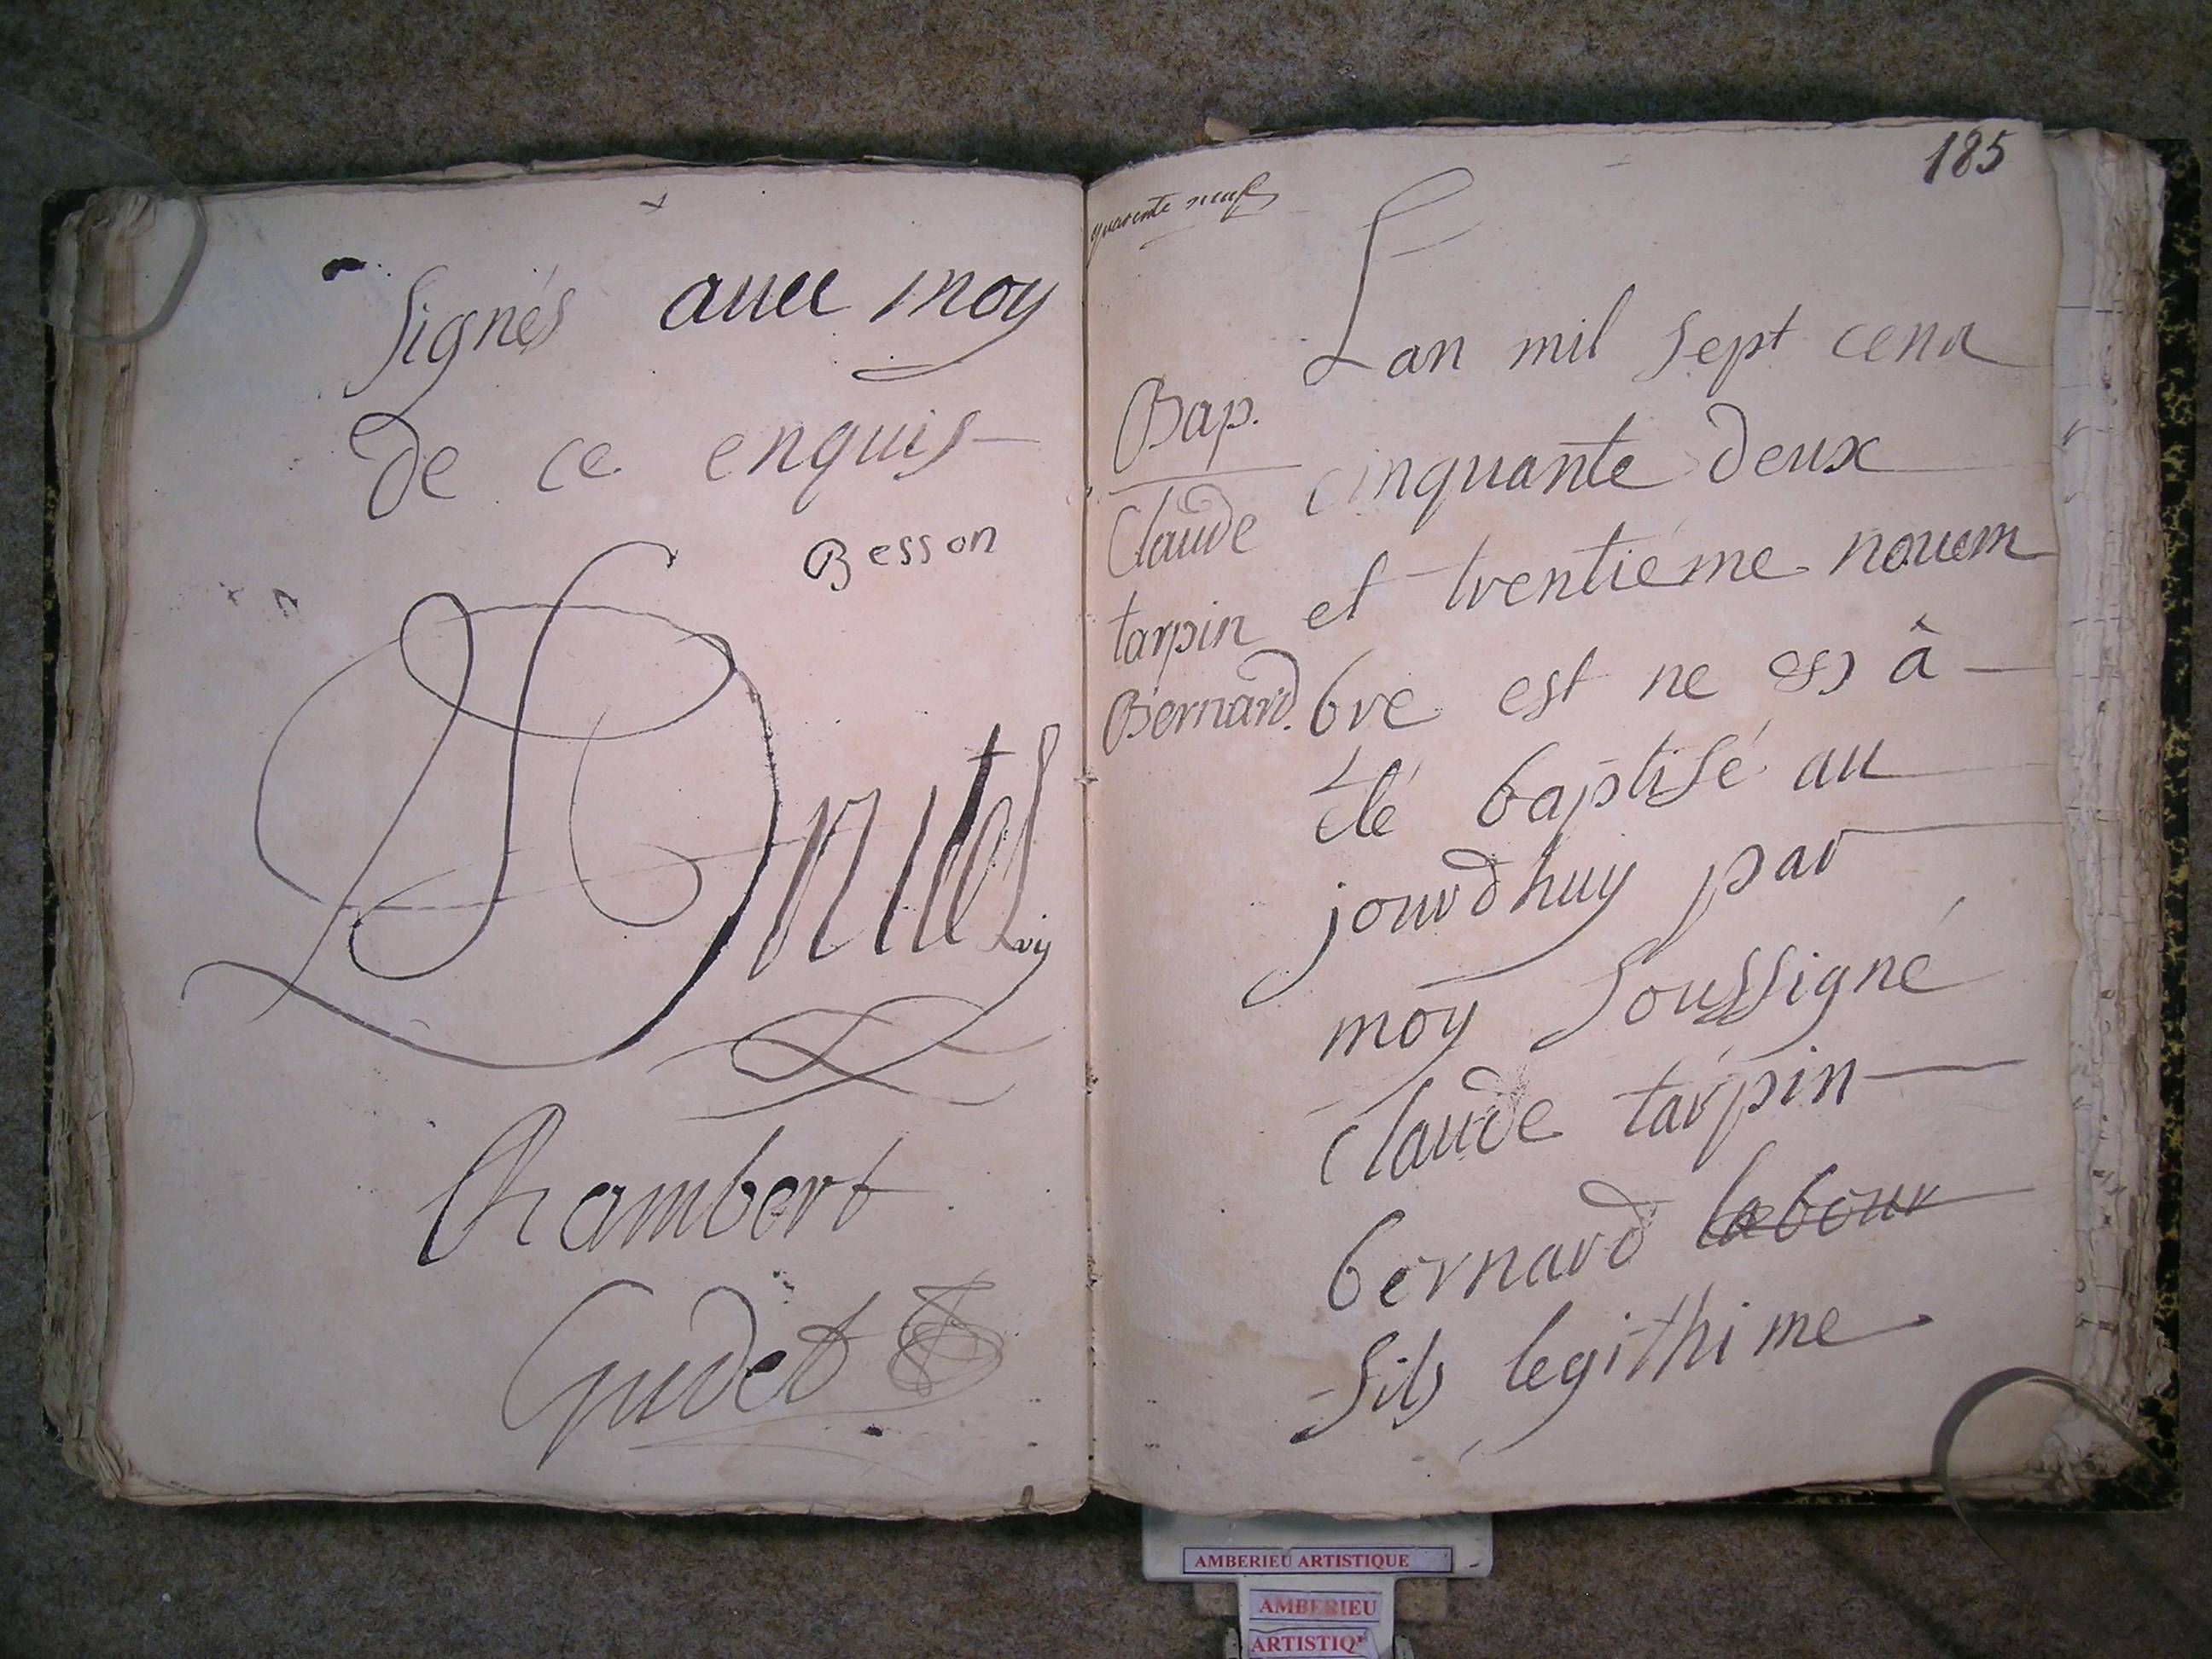 signés auec moy
de ce enquis
Besson
Chambert
Gudet
quarente neuf
185
Bap.
Claude
tarpin
Bernard.
Lan mil sept cens
cinquante deux
et trentiéme nouem
bre est ne & â
été baptisé au
jourdhuy par
moy soussigné
Claude tarpin
bernard labour
fils legithime
AMBERIEU ARTISTIQUE
AMBERIEU
ARTISTIQ